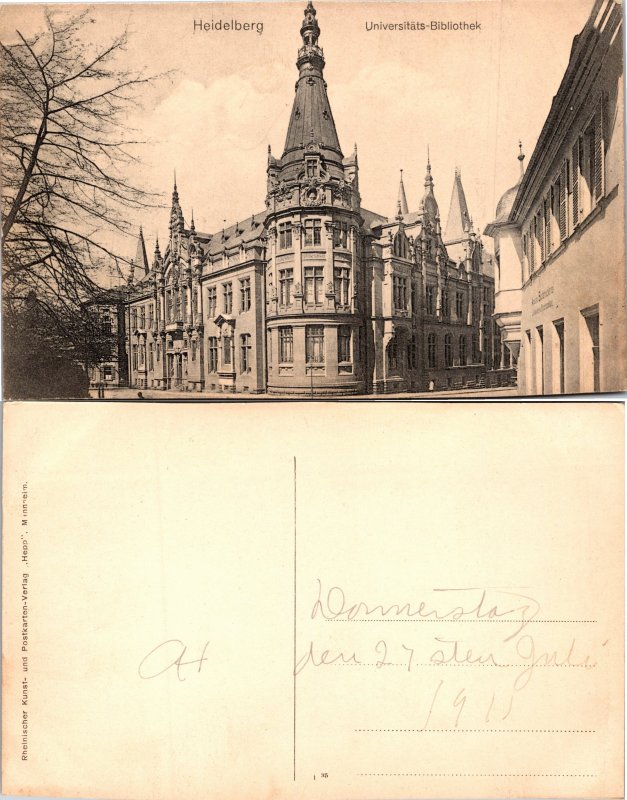 Heidelberg
Universitäts-Bibliothek
Rheinischer Kunst- und Postkarten-Verlag „Hepp", Mannheim.
Donnerstag
den 27sten Juli
1911
35